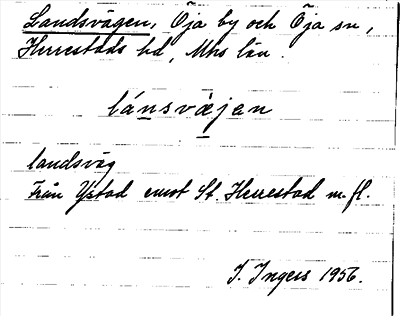 Landsvägen, Öja by och Öja sn,
Herrestads hd, Mhs län.
lánsvæjen
landsväg
Från Ystad emot St. Herrestad m. fl.
I. Ingers 1956.